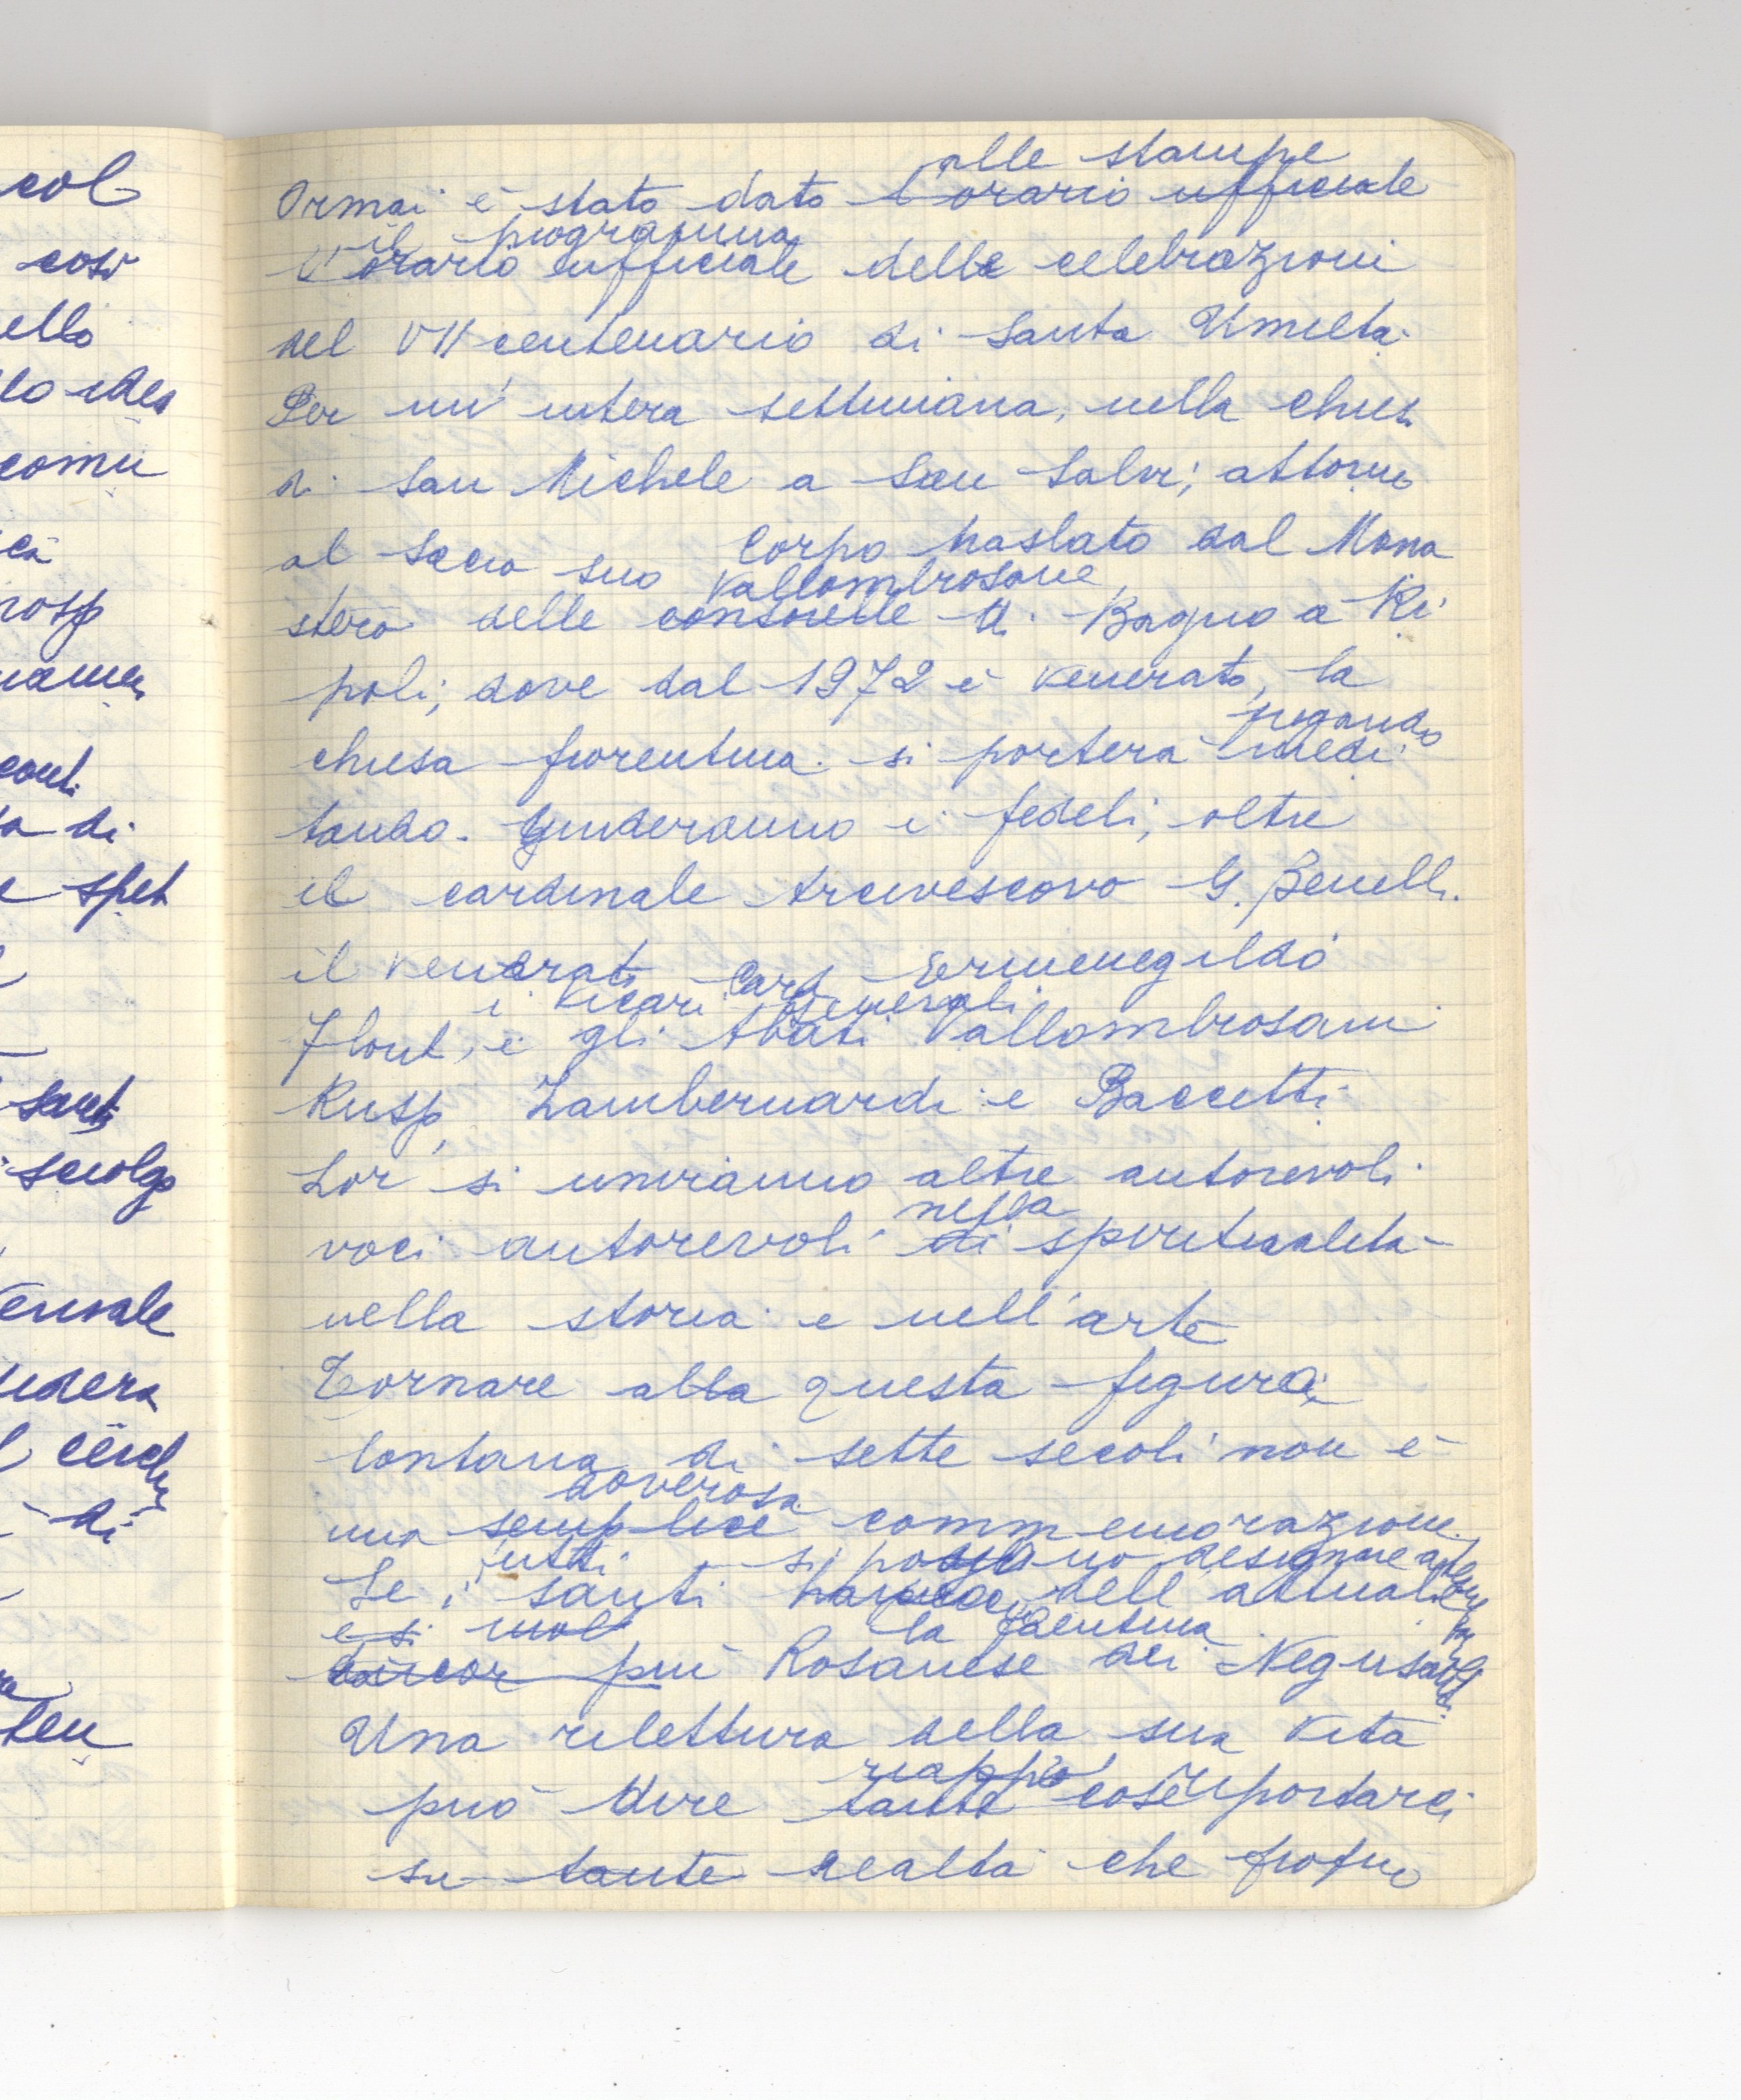 col
così
ello
lo idea
comu
ca
rosp
namen
conti
ta di
e spet
sant
scuolge
ensale
udera
l cerch
di
len
alle stampe
Ormai è stato dato l'orario ufficiale
il programma
l'orario ufficiale delle celebrazioni
nel VII centenario di Santa Umiltà.
Per un'intera settimana, nella chiesa
di San Michele a San Salvi, attorno
al sacro suo Corpo traslato dal Mona
vallombrosane
stero delle consorelle di Bagno a Ri
poli, dove dal 1972 è venerato, la
pregando
chiesa fiorentina si porterà medi
tando. Guideranno i fedeli, oltre
il cardinale Arcivescovo G. Benelli.
il venerato Card Ermenegildo
i Vicari Generali
Florit, e gli Abati Vallombrosani
Rusp, Zambernardi e Baccetti
Lor si uniranno altre autorevoli
nella
voci autorevoli di spiritualità
nella storia e nell'arte
Tornare alla questa figura,
lontana di sette secoli non è
doverosa
una semplice commemorazione.
tutti si possono designare
Se i santi hanno dell'attuali
e si la faentina
ancor più Rosanese dei Negusanti
Una rilettura della sua vita
può dire tante cose riportarci
su tante realtà che